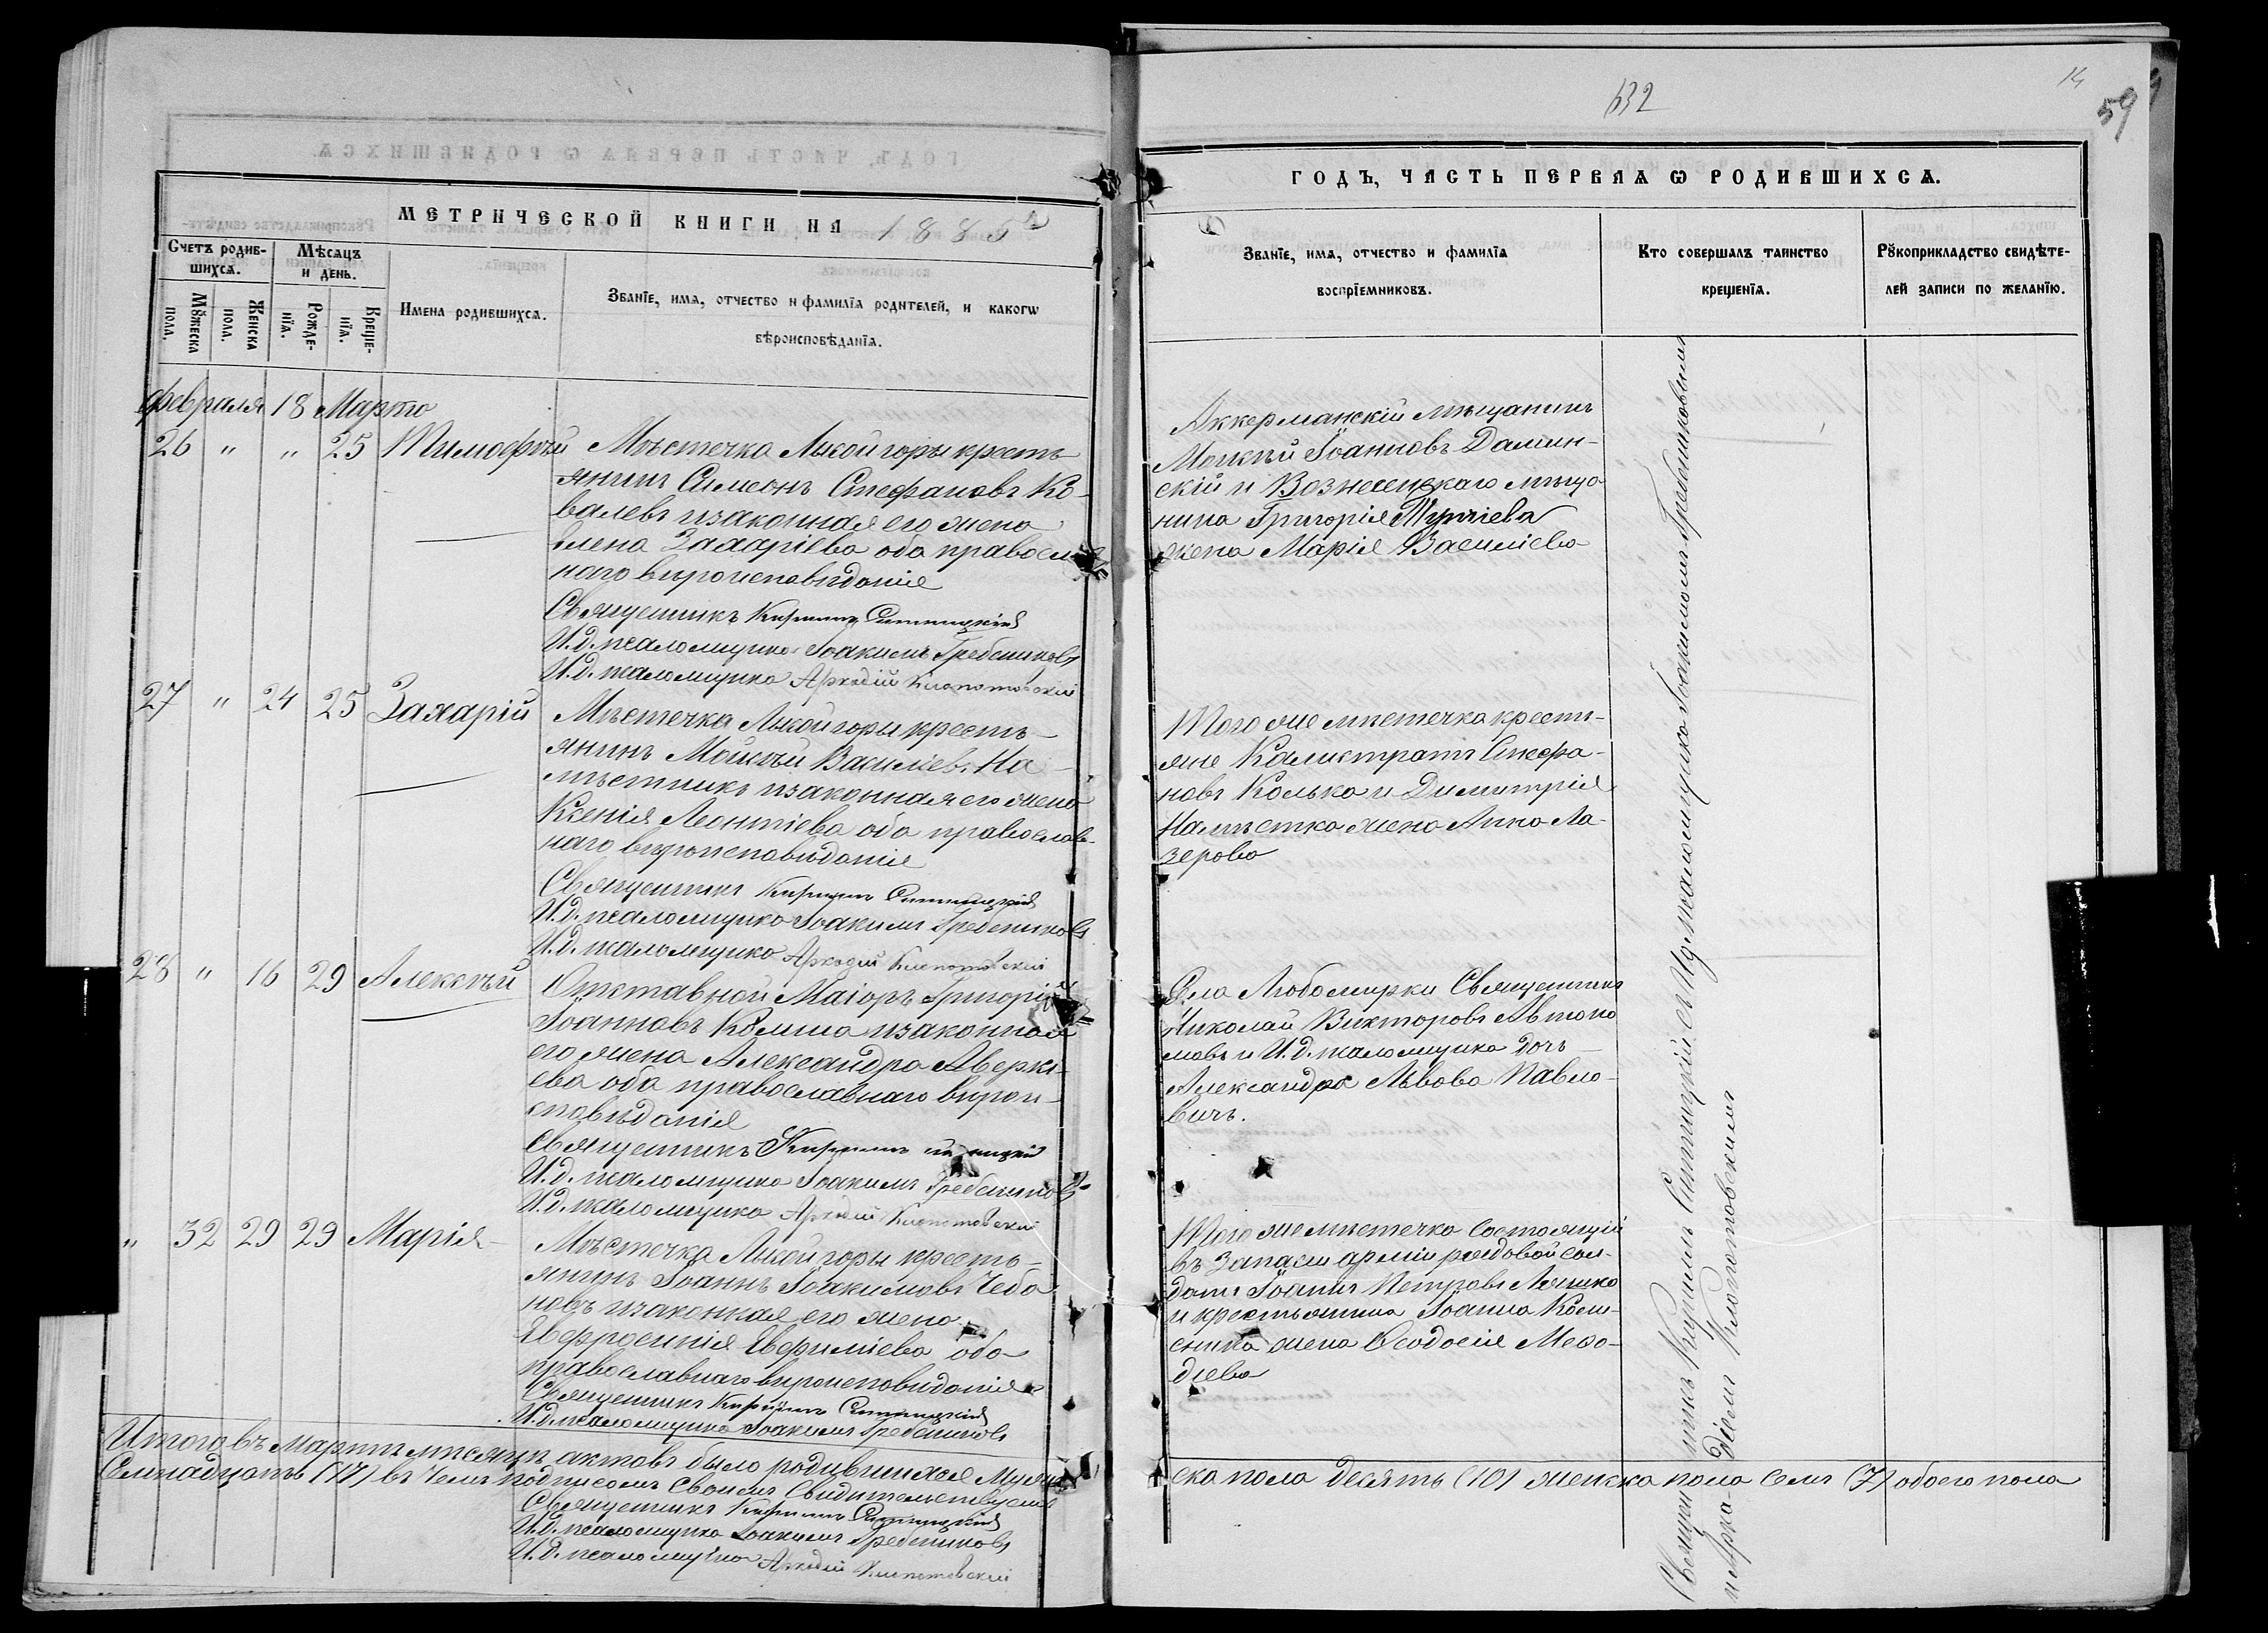 632
14
59
МЕТРИЧЕСКОЙ КНИГИ НА 1885
ГОДЪ, ЧАСТЬ ПЕРВАЯ Ѡ РОДИВШИХСѦ.
Счетъ родив-
шихсѧ.
Мѣсяцъ
и день.
Мꙋжеска
пола.
Женска
пола.
Рожде-
нїѧ.
Креще-
нїѧ.
Имена родившихсѧ.
Званїе, имѧ, отчество и фамилїа родителей, и какогѡ
вѣроисповѣданїѧ.
Званїе, имѧ, отчество и фамилїа
воспрїемниковъ.
Кто совершалъ таинство
крещенїѧ.
Рꙋкоприкладство свидѣте-
лей записи по желанїю.
февраля 18 Марта
26 " " 25 Тимофѣй
Мѣстечка Лысой горы кресть
янинъ Симеонъ Стефановъ Ко-
валевъ изаконная его жена
Елена Захаріева оба православ
наго вѣроисповѣданія
Священникъ Кириллъ Синицкій
И.д. псаломщика Іоакимъ Гребенниковъ
И.д. псаломщика Аркадій Клопотовскій
Аккерманскій мѣщанинъ
Моисей Іоанновъ Далин-
скій и Вознесенскаго мѣща
нина Григорія
жена Марія Василіева
27 " 24 25 Захарій
Мѣстечка Лысой горы кресть-
янинъ Моисей Василіевъ На-
мѣстникъ изаконная его жена
Ксенія Леонтіева оба православ-
наго вѣроисповѣданія
Священникъ Кириллъ Синицкій
И.д. псаломщика Іоакимъ Гребенниковъ
И.д. псаломщика Аркадій Клопотовскій
Того же мѣстечка кресть-
яне Калистратъ Стефа-
новъ Колько и Димитрія
Намѣстка жена Анна Ла-
зерова
28 " 16 29 Алексѣй
Отставной Маіоръ Григорій
Іоанновъ изаконная
его жена Александра Аверкі-
ева оба православнаго вѣрои-
сповѣданія
Священникъ Кириллъ
И.д. псаломщика Іоакимъ Гребенниковъ
И.д. псаломщика Аркадій Клопотовскій
Села Любомирки Священникъ
Николай Викторовъ Автоно
мовъ и И.д. псаломщика дочь
Александра Львова Павло-
вичъ.
" 32 29 29 Марія
Мѣстечка Лысой горы кресть-
янинъ Іоаннъ Іоакимовъ Чеба
новъ изаконная его жена
Евфросинія Евфиміева оба
православнаго вѣроисповѣданія
Священникъ Кириллъ Синицкій
И.д. псаломщика Іоакимъ Гребенниковъ
Того же мѣстечка состоящій
въ запасѣ арміи рядовой сол-
датъ Іоаннъ Петровъ Ляшко
и крестьянина Іоанна
жена Ѳеодосія Меѳо-
діева
Священникъ Кириллъ Синицкій съ И.д. псаломщика Іоакимомъ Гребенниковымъ
и Аркадіемъ Клопотовскимъ
Итого въ мартѣ мѣсяцѣ актовъ было родившихся Муже
ска пола десять (10) женска пола семь (7) обоего пола
Семнадцать (17) въ чемъ подписомъ своимъ свидѣтельствуемъ
Священникъ Кириллъ Синицкій
И.д. псаломщика Іоакимъ Гребенниковъ
И.д. псаломщика Аркадій Клопотовскій